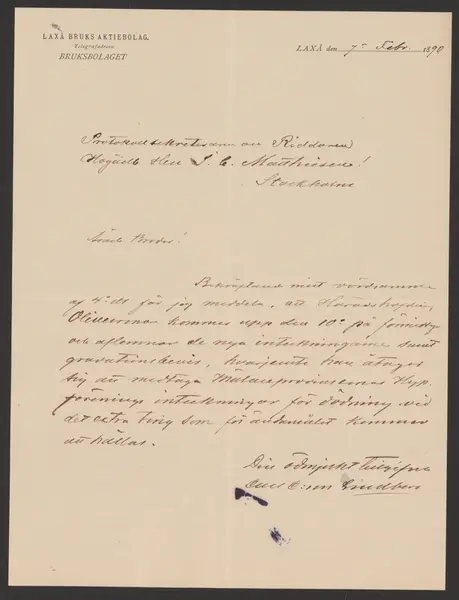 LAXÅ BRUKS AKTIEBOLAG.
Telegrafadress
BRUKSBOLAGET
LAXÅ den 7e Febr. 1890
Protokollsekreteraren oc Riddaren
Högädle Herr J. C. Matthiesen!
Stockholm
Ärade Broder!
Bekräftande mitt vördsamma
af 4: ds får jag meddela, att Häradshöfding
kommer upp den 10e på förmiddag
och aflemnar de nya inteckningarne samt
gravationsbevis, hvarjemte han åtager
sig att medtaga Mälareprovinsernas Hyp.
förenings inteckningar för dödning vid
det extra ting som för ändamålet kommer
att hållas.
Din ödmjukt tillgifne
Lindberg